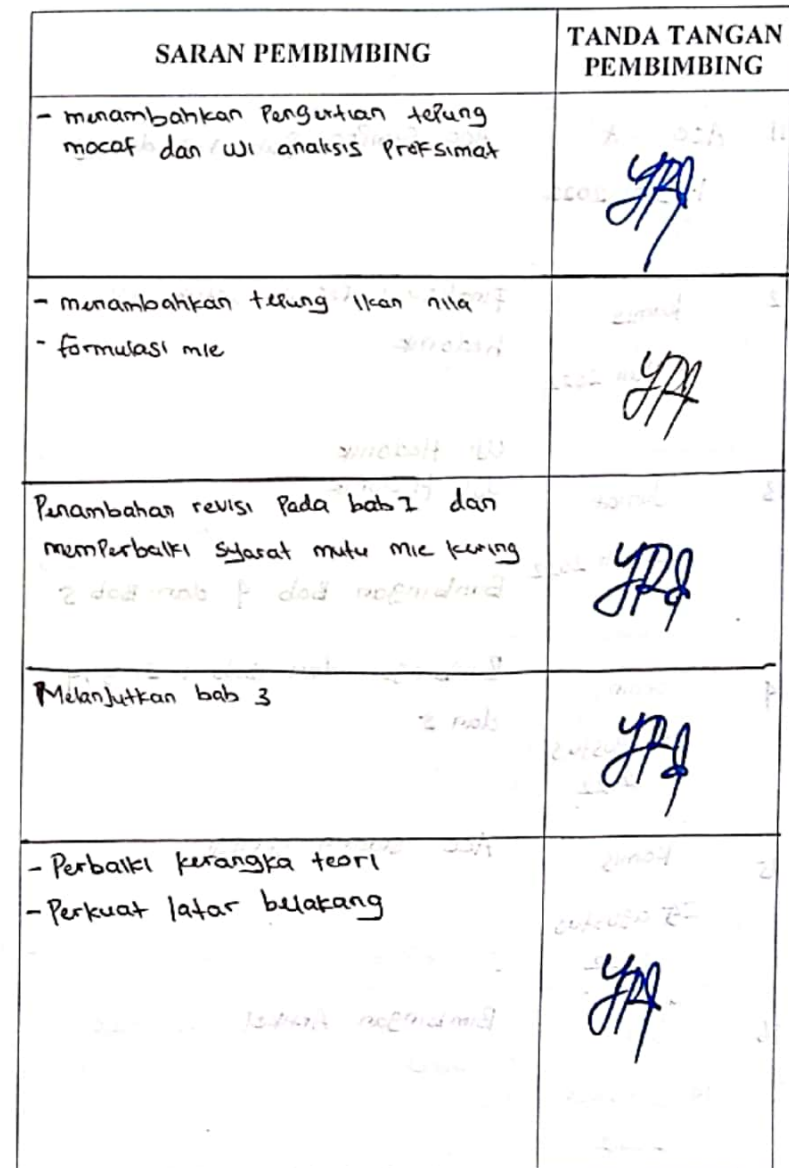 SARAN PEMBIMBING
TANDA TANGAN
PEMBIMBING
- menambahkan Pengertian tepung
mocaf dan uji analisis Proksimat
- menambahkan tepung ikan nila
- formulasi mie
Penambahan revisi Pada bab I dan
memperbaiki syarat mutu mie kering
Melanjutkan bab 3
- Perbaiki kerangka teori
- Perkuat latar belakang